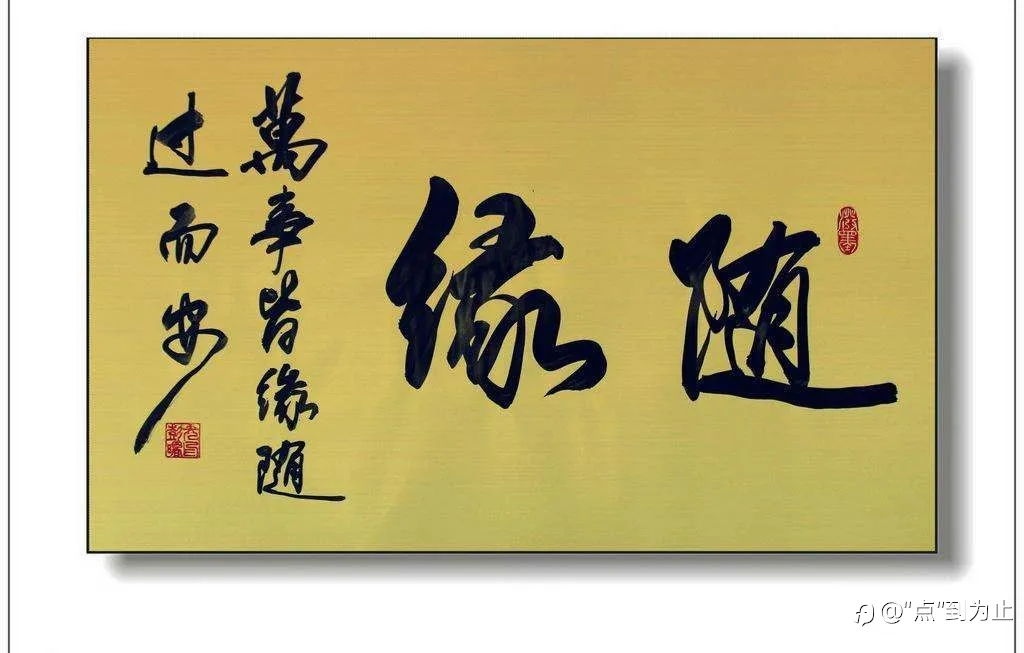 随
缘
萬事皆缘随
遇而安
@"点"到为止